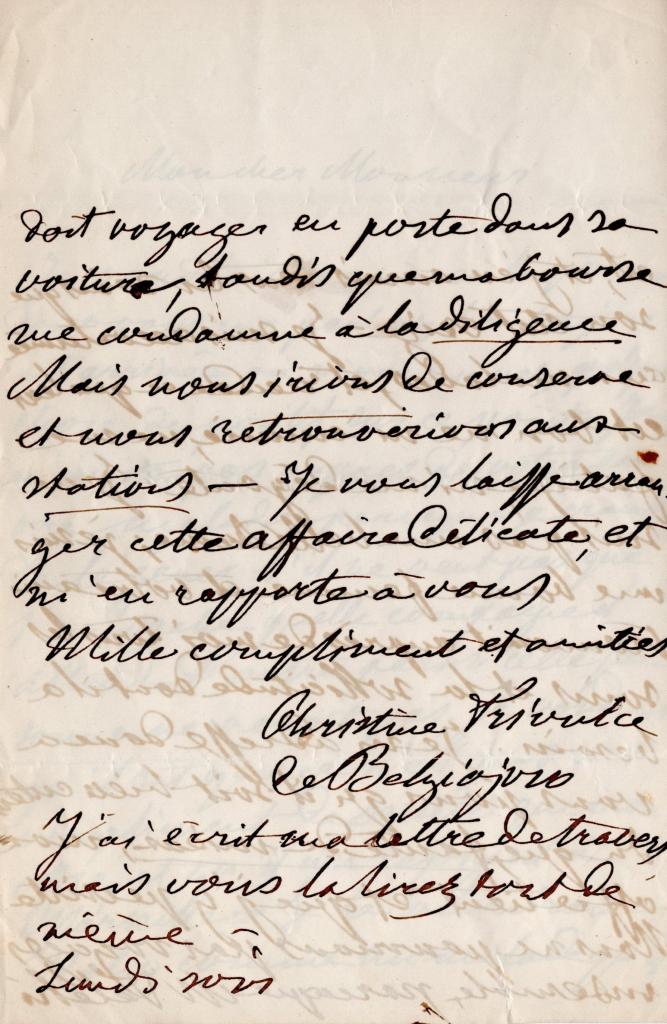 doit voyager en poste dans sa
voiture, tandis que ma bourse
me condamne à la diligence
Mais nous irions de conserve
et nous retrouverions aux
stations — Je vous laisse arran
ger cette affaire délicate, et
m'en rapporte à vous
Mille compliment et amitiés
Christine Trivulce
de Belgiojoso
J'ai écrit ma lettre de travers
mais vous la lirez tout de
même —
Lundi soir